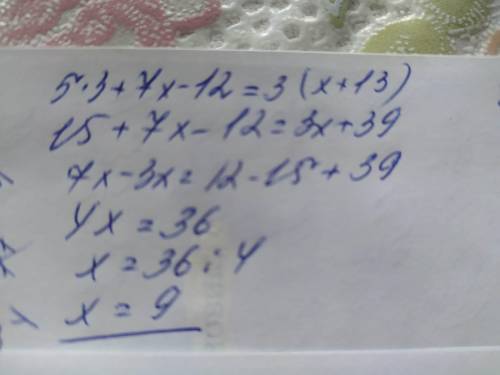 5·3+7x-12=3(x+13)
15+7x-12=3x+39
7x-3x=12-15+39
4x=36
x=36:4
x=9